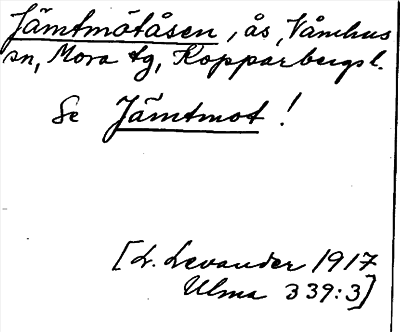 Jämtmötåsen, ås, Våmhus
sn, Mora tg, Kopparbergs l.
Se Jämtmot!
[L. Levander 1917
Ulma 339:3]